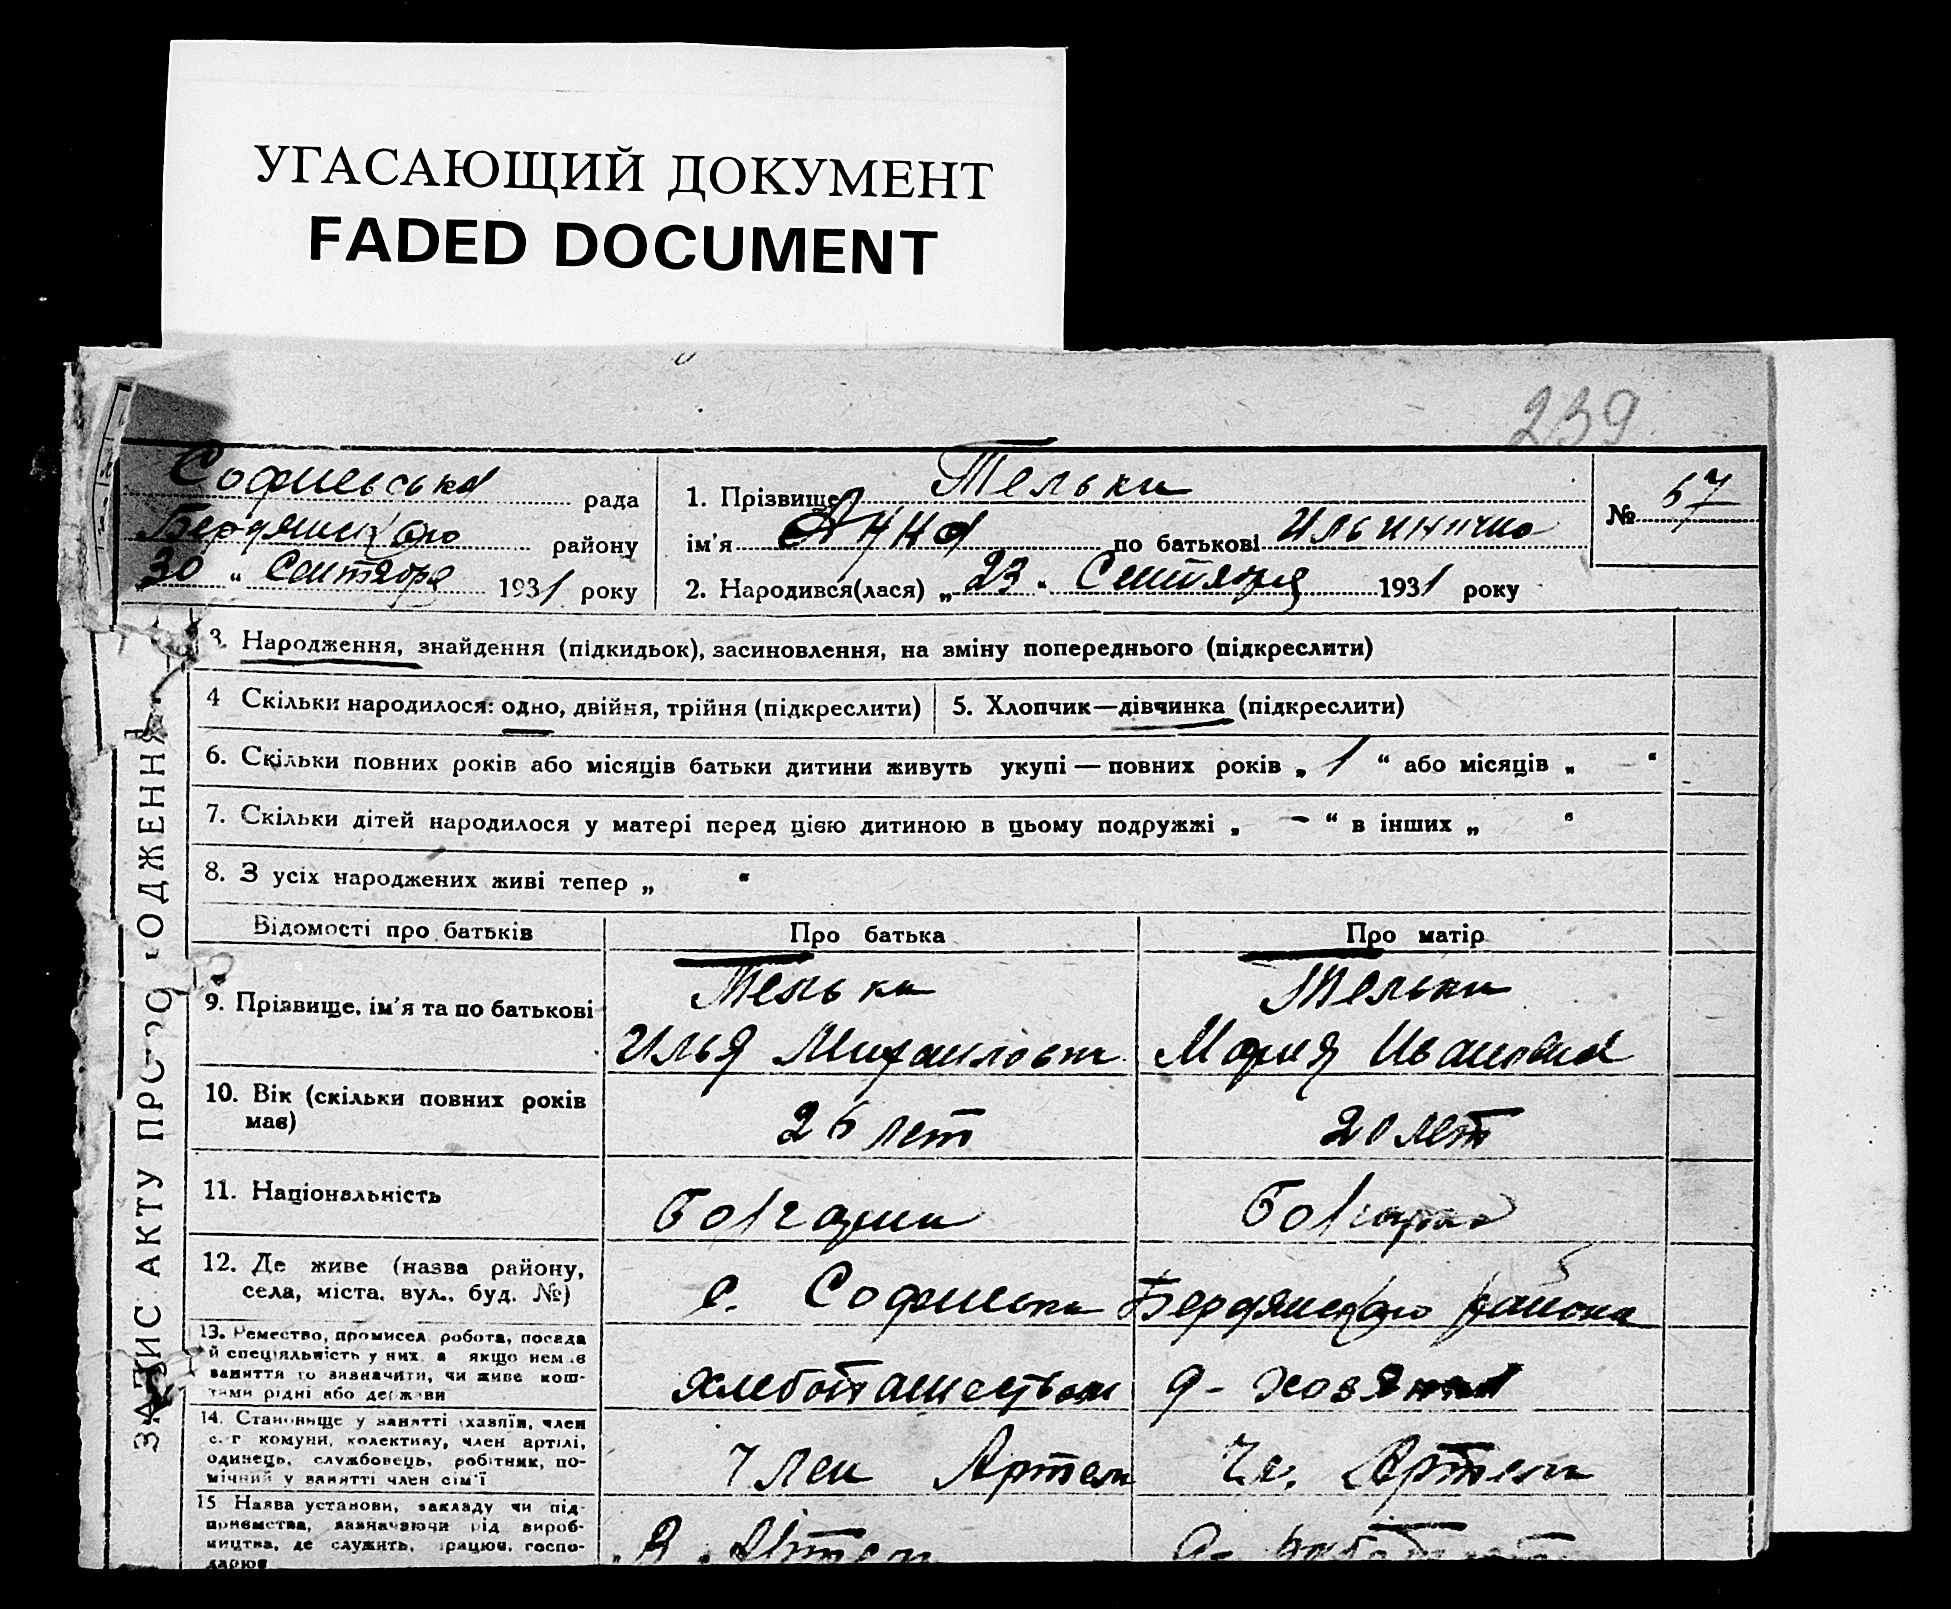 УГАСАЮЩИЙ ДОКУМЕНТ
FADED DOCUMENT
239
Софиевська рада
Бердянського району
30 " Сентября 1931 року
1. Прізвище Тельки
ім'я Анна по батькові Ильинична
2. Народився(лася) „ 23 " Сентября 1931 року
№ 57
ЗАПИС АКТУ ПРО НАРОДЖЕННЯ
3. Народження, знайдення (підкидьок), засиновлення, на зміну попереднього (підкреслити)
4 Скільки народилося: одно, двійня, трійня (підкреслити)
5. Хлопчик—дівчинка (підкреслити)
6. Скільки повних років або місяців батьки дитини живуть укупі — повних років „ 1 “ або місяців „ “
7. Скільки дітей народилося у матері перед цією дитиною в цьому подружжі „ - “ в інших „ “
8. З усіх народжених живі тепер „ “
Відомості про батьків
Про батька
Про матір
9. Прізвище, ім'я та по батькові
Тельки
Илья Михайлович
Тельки
Мария Ивановна
10. Вік (скільки повних років
має)
26 лет
20 лет
11. Національність
Болгарин
Болгарка
12. Де живе (назва району,
села, міста, вул., буд. №)
с. Софиевка Бердянского района
13. Ремество, промисел, робота, посада
й спеціяльність у них, а якщо немає
заняття то зазначити, чи живе кош-
тами рідні або держави
хлебопашеством
д-хозяйка
14. Становище у занятті хазяїн, член
с.-г комуни, колективу, член артілі,
одинець, службовець, робітник, по-
мічний у занятті член сім'ї
Член Артели
Чл. Артели
15 Назва установи, закладу чи під-
приємства, зазначаючи рід вироб-
ництва, де служить, працює, госпо-
дарює
В Артели